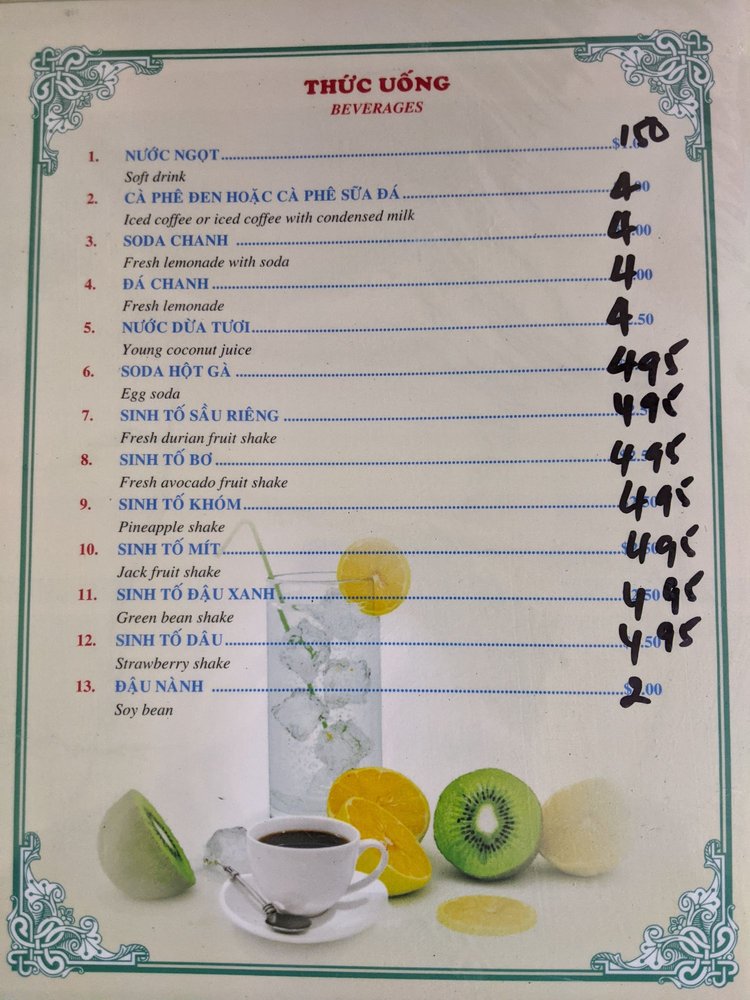 THỨC UỐNG
BEVERAGES
1. NƯỚC NGỌT 150
Soft drink
2. CÀ PHÊ ĐEN HOẶC CÀ PHÊ SỮA ĐÁ 4
Iced coffee or iced coffee with condensed milk
3. SODA CHANH 4
Fresh lemonade with soda
4. ĐÁ CHANH 4
Fresh lemonade
5. NƯỚC DỪA TƯƠI 4
Young coconut juice
6. SODA HỘT GÀ 495
Egg soda
7. SINH TỐ SẦU RIÊNG 495
Fresh durian fruit shake
8. SINH TỐ BƠ 495
Fresh avocado fruit shake
9. SINH TỐ KHÓM 495
Pineapple shake
10. SINH TỐ MÍT 495
Jack fruit shake
11. SINH TỐ ĐẬU XANH 495
Green bean shake
12. SINH TỐ DÂU 495
Strawberry shake
13. ĐẬU NÀNH 2
Soy bean